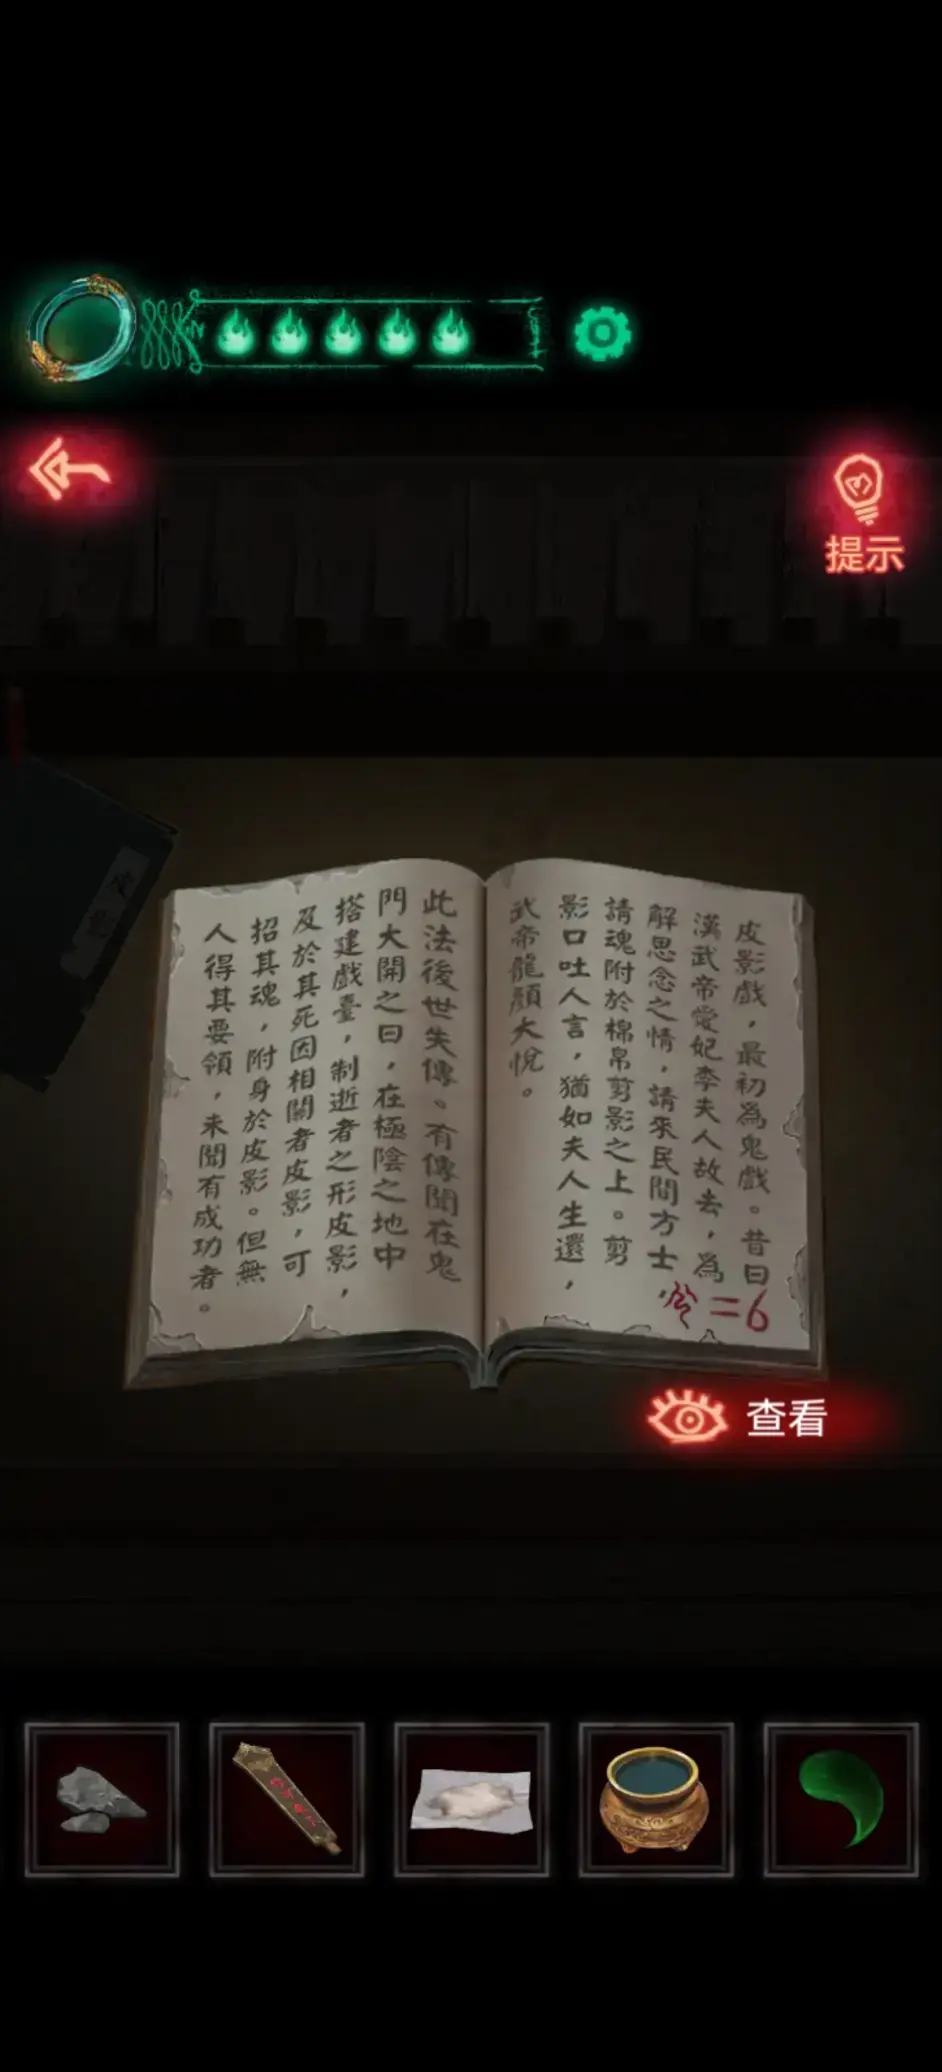 提示
皮影戲，最初為鬼戲。昔日
漢武帝愛妃李夫人故去，為
解思念之情，請來民間方士，
請魂附於棉帛剪影之上。剪
影口吐人言，猶如夫人生還，
武帝龍顏大悅。
此法後世失傳。有傳聞在鬼
門大開之日，在極陰之地中
搭建戲臺，制逝者之形皮影，
及於其死因相關者皮影，可
招其魂，附身於皮影。但無
人得其要領，未聞有成功者。
=6
查看
皮影